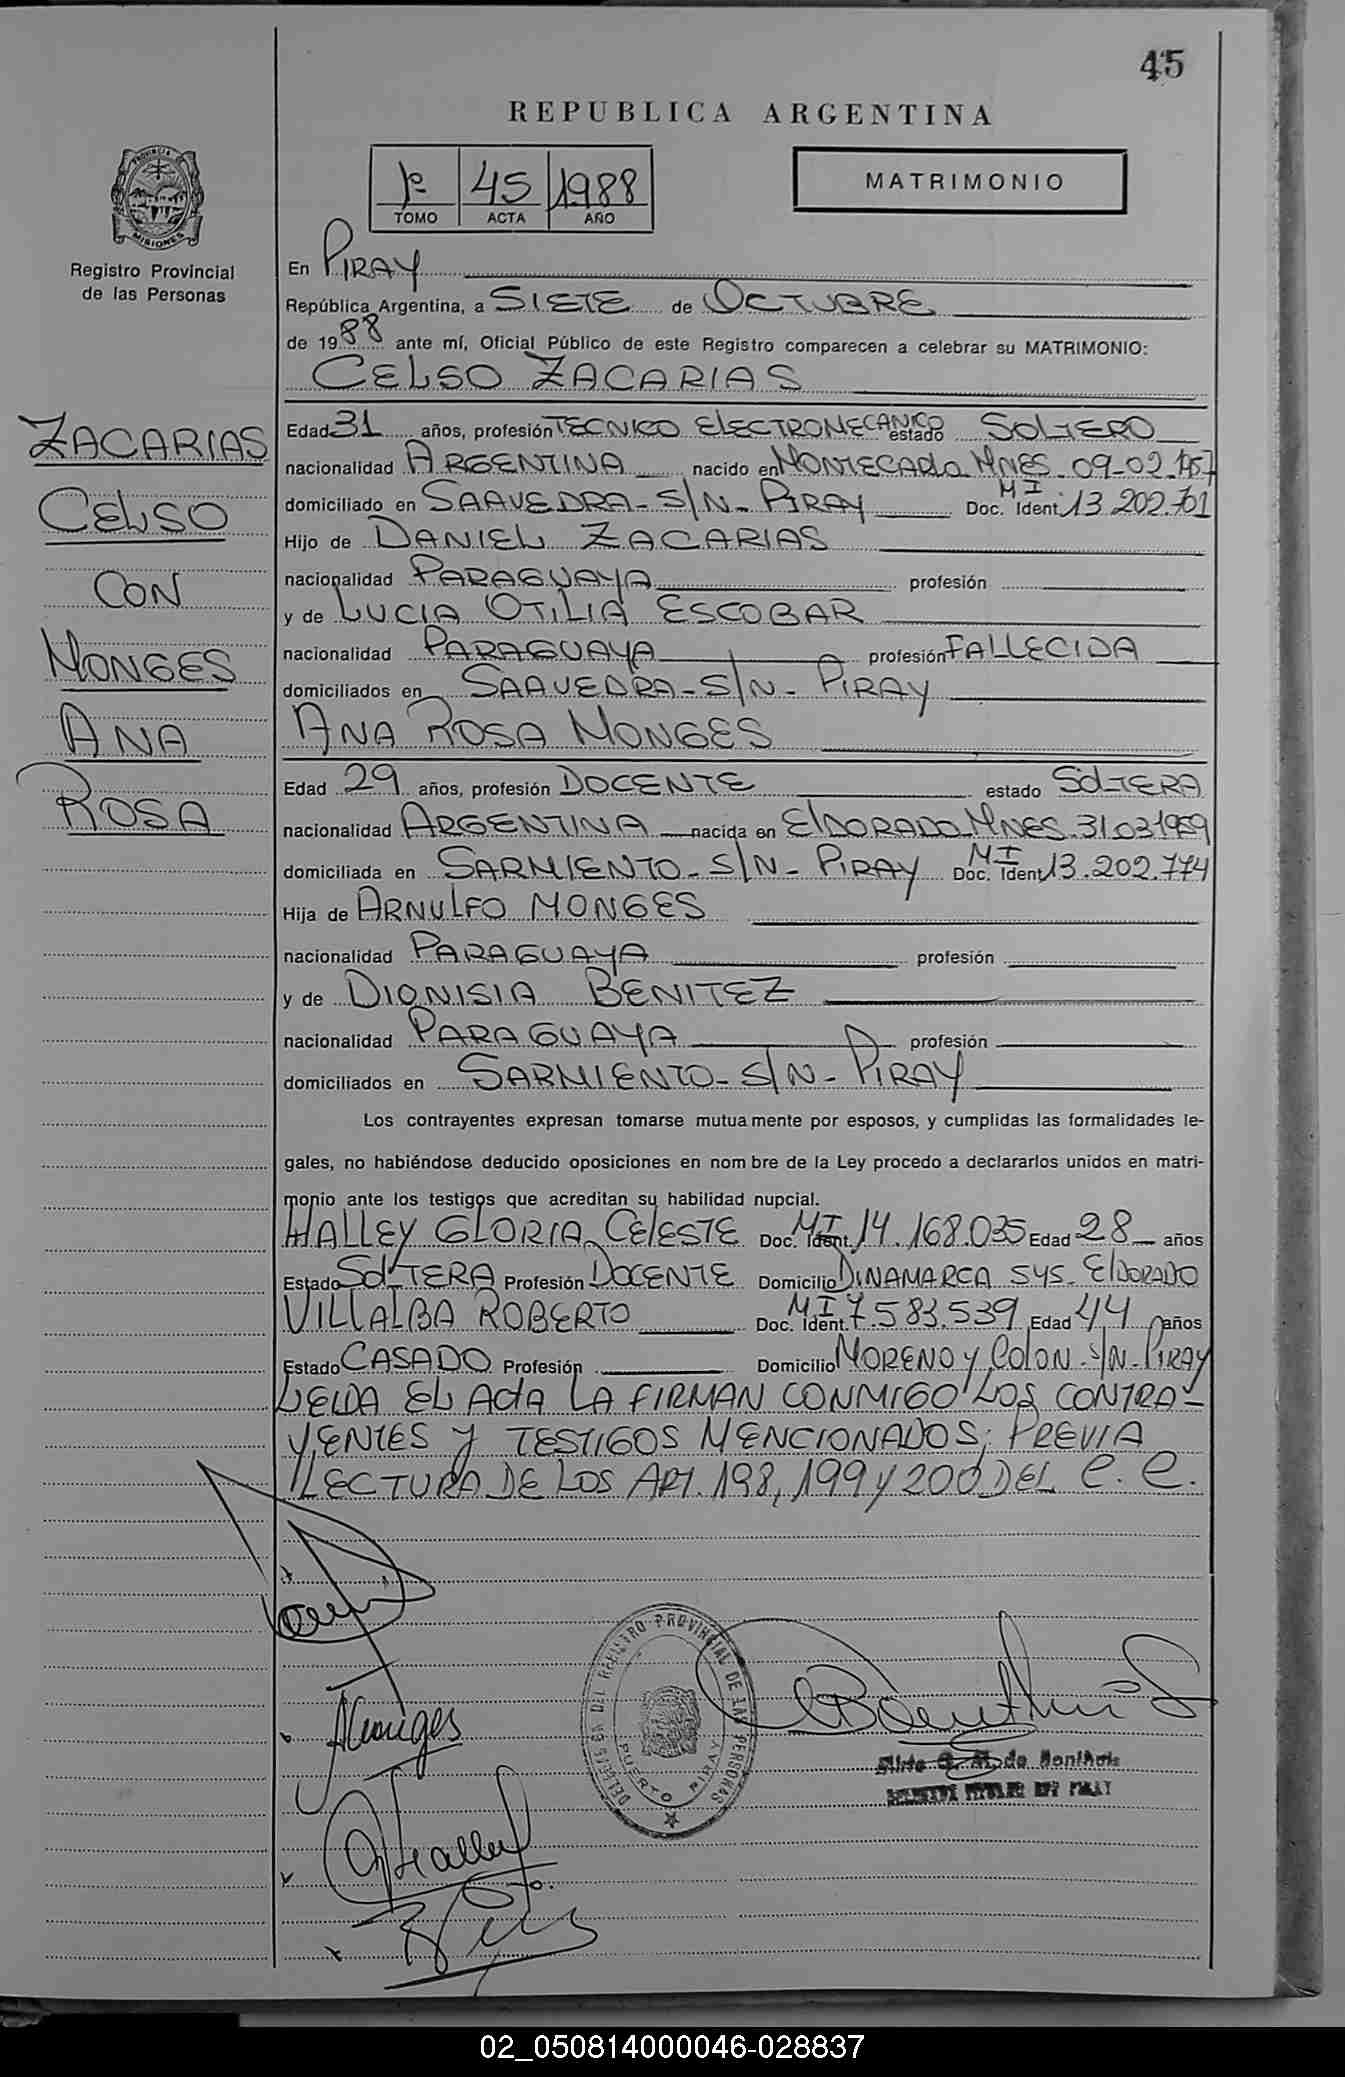 45
REPUBLICA ARGENTINA
1º 45 1988
TOMO ACTA AÑO
MATRIMONIO
PROVINCIA DE
MISIONES
Registro Provincial
de las Personas
ZACARIAS
CELSO
CON
MONGES
ANA
ROSA
En PIRAY
República Argentina, a SIETE de OCTUBRE
de 1988 ante mí, Oficial Público de este Registro comparecen a celebrar su MATRIMONIO:
CELSO ZACARIAS
Edad 31 años, profesión TECNICO ELECTROMECANICO estado SOLTERO
nacionalidad ARGENTINA nacido en MONTECARLO MNES. 09-02.1957
domiciliado en SAAVEDRA - S/N - PIRAY Doc. Ident. MI 13.202.701
Hijo de DANIEL ZACARIAS
nacionalidad PARAGUAYA profesión
y de LUCIA OTILIA ESCOBAR
nacionalidad PARAGUAYA profesión FALLECIDA
domiciliados en SAAVEDRA - S/N - PIRAY
ANA ROSA MONGES
Edad 29 años, profesión DOCENTE estado SOLTERA
nacionalidad ARGENTINA nacida en ELDORADO MNES. 31.03.1959
domiciliada en SARMIENTO - S/N - PIRAY Doc. Ident. MI 13.202.774
Hija de ARNULFO MONGES
nacionalidad PARAGUAYA profesión
y de DIONISIA BENITEZ
nacionalidad PARAGUAYA profesión
domiciliados en SARMIENTO - S/N - PIRAY
Los contrayentes expresan tomarse mutuamente por esposos, y cumplidas las formalidades le-
gales, no habiéndose deducido oposiciones en nombre de la Ley procedo a declararlos unidos en matri-
monio ante los testigos que acreditan su habilidad nupcial.
HALLEY GLORIA CELESTE Doc. Ident. MI 14.168.035 Edad 28 años
Estado SOLTERA Profesión DOCENTE Domicilio DINAMARCA SYS - ELDORADO
VILLALBA ROBERTO Doc. Ident. MI 7.583.539 Edad 44 años
Estado CASADO Profesión Domicilio MORENO Y COLON - S/N - PIRAY
LEIDA EL ACTA LA FIRMAN CONMIGO LOS CONTRA-
YENTES Y TESTIGOS MENCIONADOS; PREVIA
LECTURA DE LOS ART. 198, 199 Y 200 DEL C.C.
AMonges
DEL REGISTRO PROVINCIAL DE LAS PERSONAS
PUERTO PIRAY
02_050814000046-028837